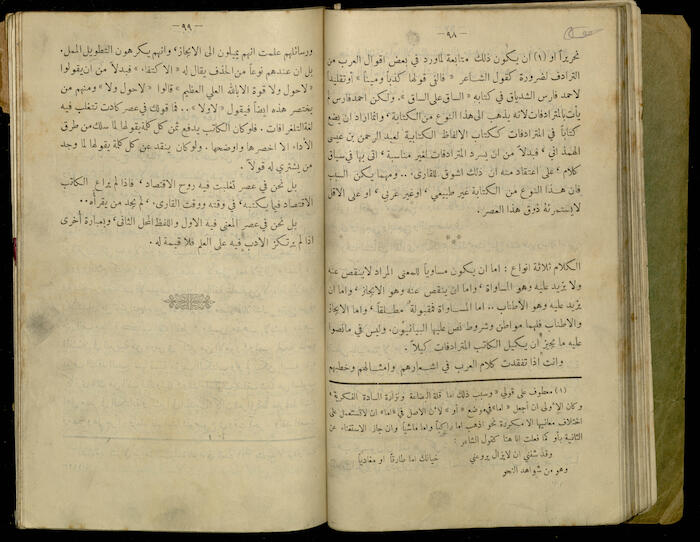 — ٩٨ —
تحريراً او (١) ان يكون ذلك متابعة لما ورد في بعض اقوال العرب من
الترادف لضرورة كقول الشاعر « فالفى قولها كذباً وميناً » او تقليداً
لاحمد فارس الشدياق في كتابه « الساق على الساق ». ولكن احمد فارس لم
يأت بالمترادفات لانه يذهب الى هذا النوع من الكتابة ، وانما اراد ان يضع
كتاباً في المترادفات ككتاب الالفاظ الكتابية لعبد الرحمن بن عيسى
الهمذاني ، فبدلاً من ان يسرد المترادفات لغير مناسبة ، اتى بها في سياق
كلام ، على اعتقاد منه ان ذلك اشوق للقارىء .. ومهما يكن السبب
فان هذا النوع من الكتابة غير طبيعي ، او غير عربي ، او على الاقل
لا يستمرئه ذوق هذا العصر .
الكلام ثلاثة انواع : اما ان يكون مساوياً للمعنى المراد لا ينقص عنه
ولا يزيد عليه وهو المساواة ، واما ان ينقص عنه وهو الايجاز ، واما ان
يزيد عليه وهو الاطناب .. اما المساواة فمقبولة مطلقاً ، واما الايجاز
والاطناب فلهما مواطن وشروط نص عليها البيانيون . وليس في ما نصوا
عليه ما يجيز أن يكيل الكاتب المترادفات كيلاً .
وانت اذا تفقدت كلام العرب في اشعارهم وامثالهم وخطبهم
(١) معطوف على قولي « وسبب ذلك اما قلة البضاعة ونزارة المادة الفكرية ،
وكان الاولى ان اجعل « اما » في موضع « أو » لأن الاصل في « اما » ان لا تستعمل على
اختلاف معانيها الا مكررة نحو اذهب اما راكباً واما ماشياً وان جاز الاستغناء عن
الثانية بأو كما فعلت انا هنا كقول الشاعر :
وقد شفني ان لا يزال يروعني خيالك اما طارقاً او مغادياً
وهو من شواهد النحو
— ٩٩ —
ورسائلهم علمت انهم يميلون الى الايجاز ، وانهم يكرهون التطويل الممل.
بل ان عندهم نوعاً من الحذف يقال له « الاكتفاء » فبدلاً من ان يقولوا
« لاحول ولا قوة الا بالله العلي العظيم » قالوا « لاحول ولا » ومنهم من
يختصر هذه ايضاً فيقول « لا ولا » .. فما قولك في عصر كادت تتغلب فيه
لغة التلغرافات . فلو كان الكاتب يدفع ثمن كل كلمة يقولها لما سلك من طرق
الأداء الا اخصرها واوضحها . ولو كان ينقد عن كل كلمة يقولها لما وجد
من يشتري له قولاً .
بل نحن في عصر تغلبت فيه روح الاقتصاد ، فاذا لم يراع الكاتب
الاقتصاد فيما يكتبه , في وقته ووقت القارىء , لم يجد من يقرأه ..
بل نحن في عصر المعنى فيه الاول واللفظ المحل الثاني ، وبعبارة أخرى
اذا لم يرتكز الادب فيه على العلم فلا قيمة له .